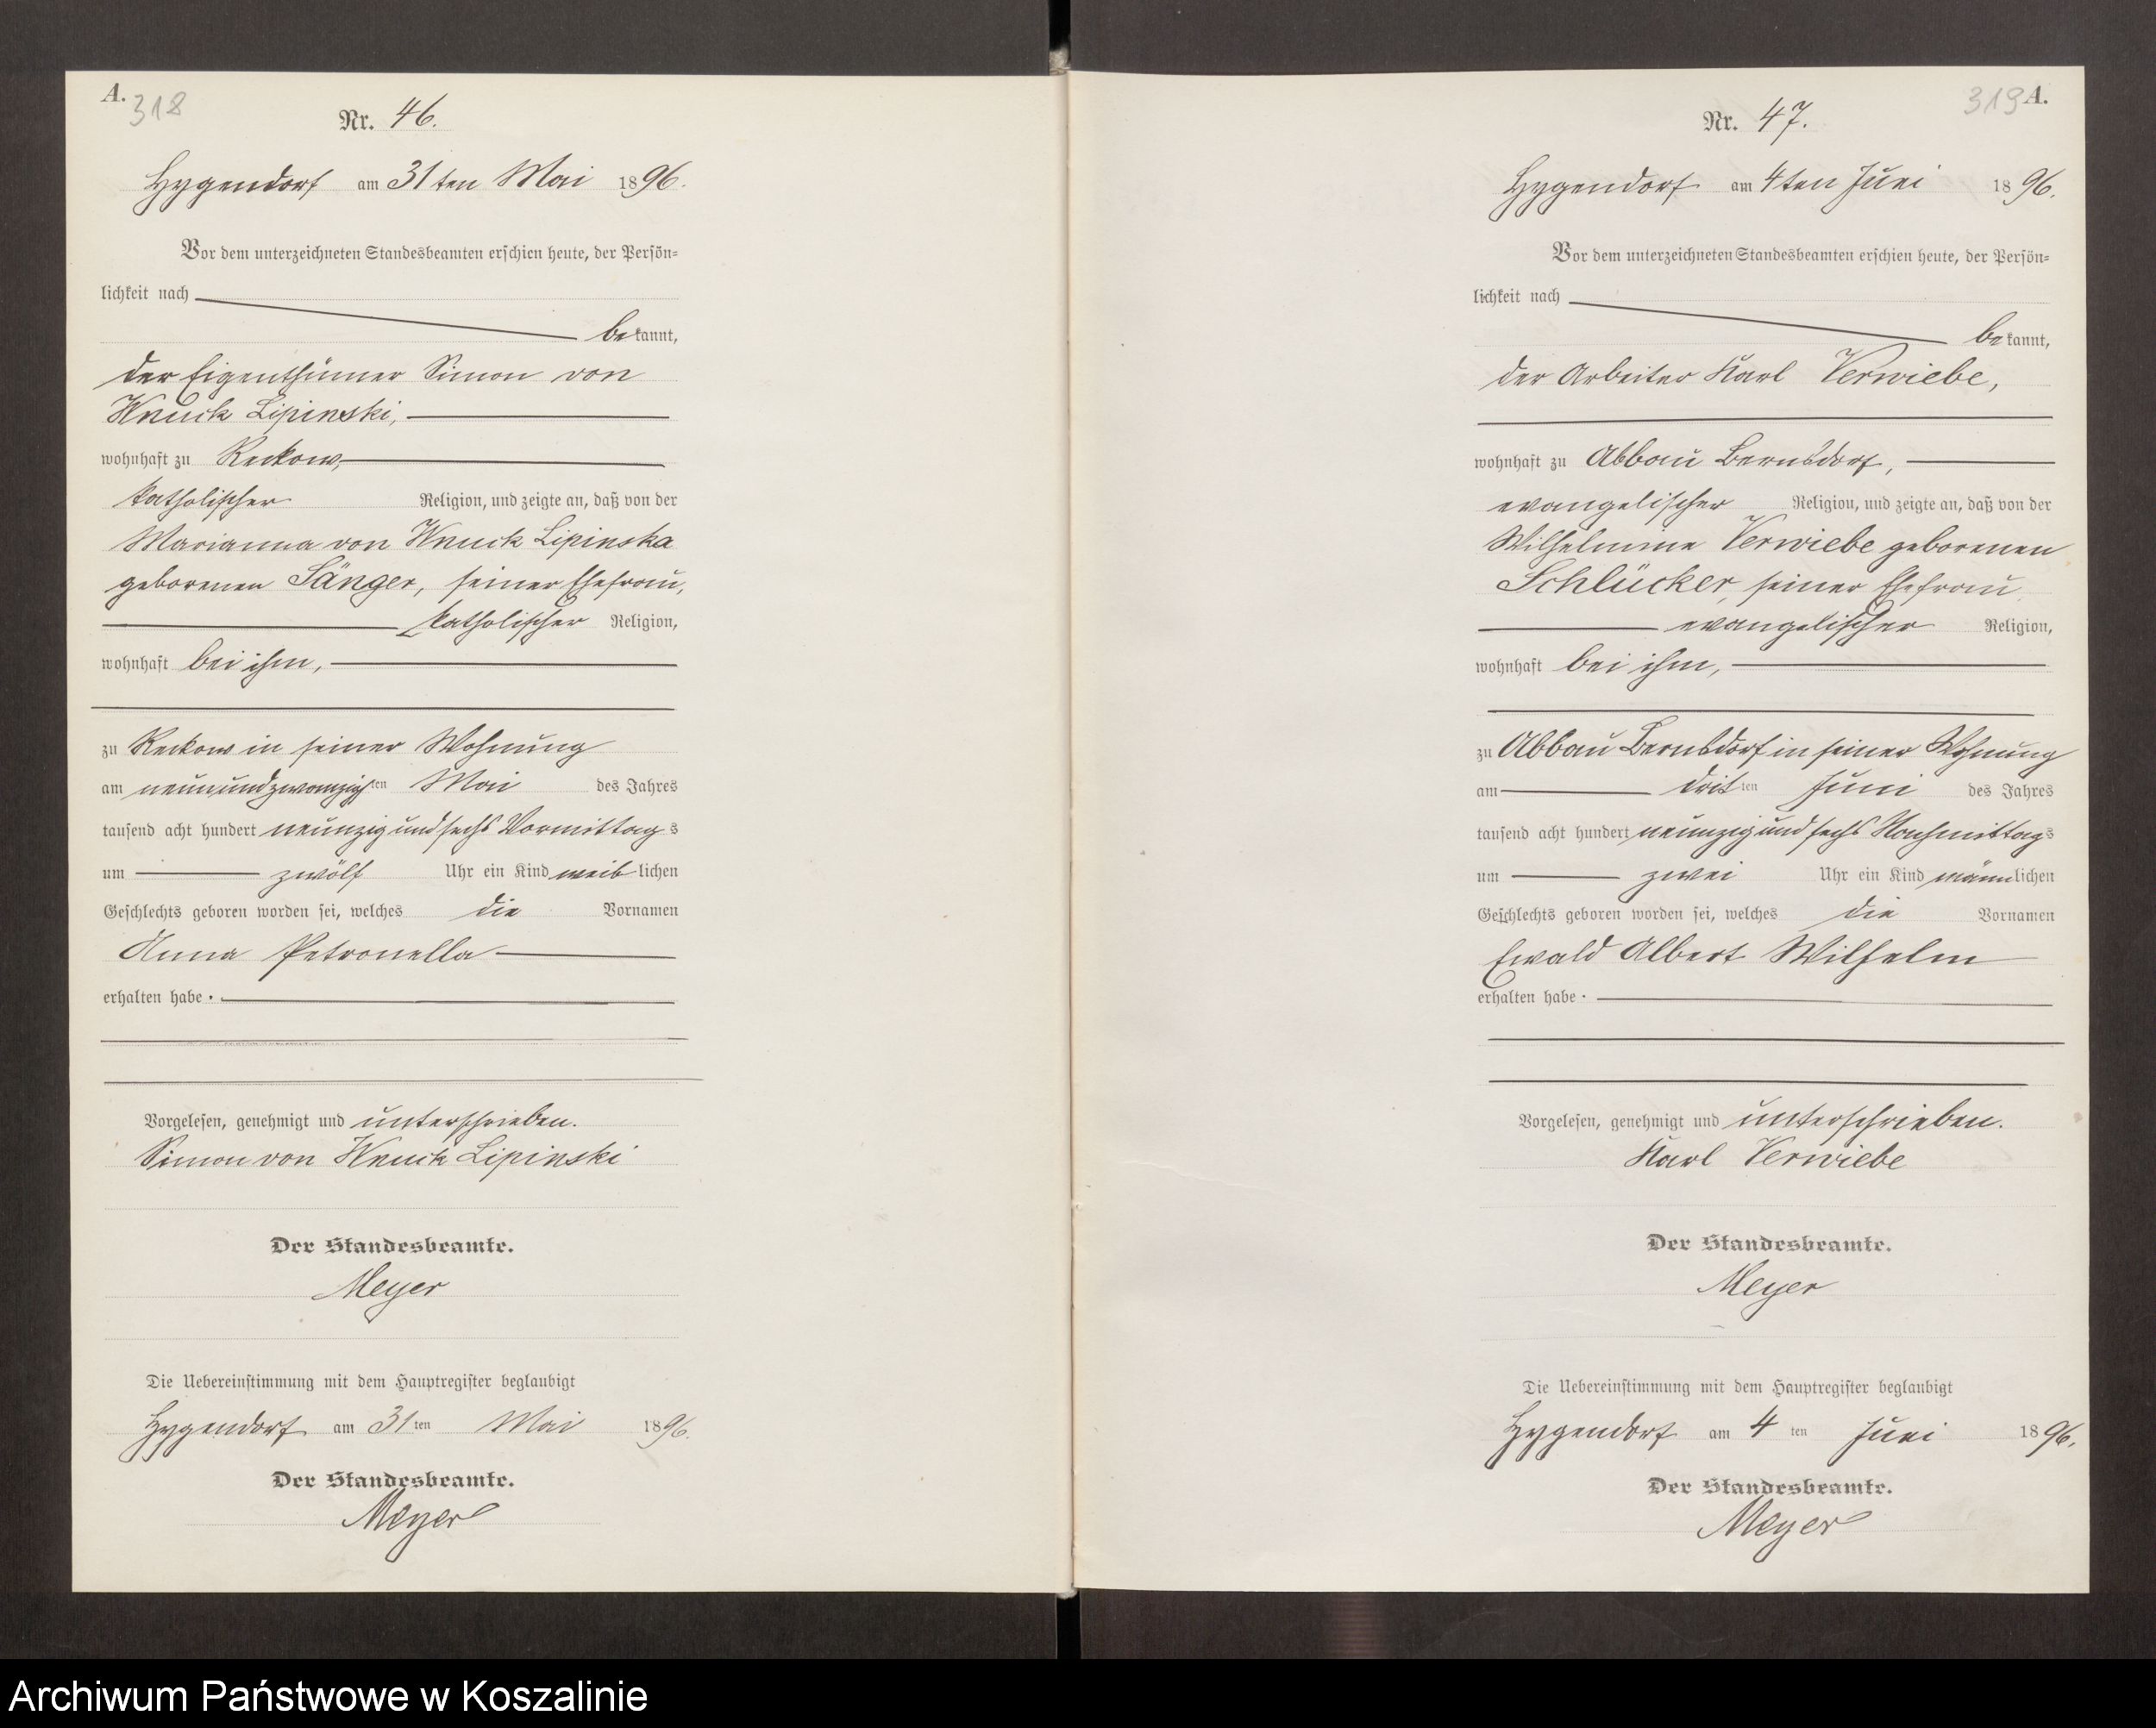 A.
318
Nr. 46.
Hygendorf am 31ten Mai 1896.
Vor dem unterzeichneten Standesbeamten erschien heute, der Persön=
lichkeit nach
bekannt,
der Eigenthümer Simon von
Wnuck Lipinski,
wohnhaft zu Reckow,
katholischer Religion, und zeigte an, daß von der
Marianna von Wnuck Lipinska
geborenen Sänger, seiner Ehefrau,
katholischer Religion,
wohnhaft bei ihm,
zu Reckow in seiner Wohnung
am neunundzwanzigsten Mai des Jahres
tausend acht hundert neunzig und sechs Vormittags
um zwölf Uhr ein Kind weiblichen
Geschlechts geboren worden sei, welches die Vornamen
Anna Petronella
erhalten habe.
Vorgelesen, genehmigt und unterschrieben.
Simon von Wnuck Lipinski
Der Standesbeamte.
Meyer
Die Uebereinstimmung mit dem Hauptregister beglaubigt
Hygendorf am 31ten Mai 1896.
Der Standesbeamte.
Meyer
319 A.
Nr. 47.
Hygendorf am 4ten Juni 1896.
Vor dem unterzeichneten Standesbeamten erschien heute, der Persön=
lichkeit nach
bekannt,
der Arbeiter Karl Verwiebe,
wohnhaft zu Abbau Bernsdorf,
evangelischer Religion, und zeigte an, daß von der
Wilhelmine Verwiebe geborenen
Schlücker, seiner Ehefrau
evangelischer Religion,
wohnhaft bei ihm,
zu Abbau Bernsdorf in seiner Wohnung
am dritten Juni des Jahres
tausend acht hundert neunzig und sechs Nachmittags
um zwei Uhr ein Kind männlichen
Geschlechts geboren worden sei, welches die Vornamen
Ewald Albert Wilhelm
erhalten habe.
Vorgelesen, genehmigt und unterschrieben.
Karl Verwiebe
Der Standesbeamte.
Meyer
Die Uebereinstimmung mit dem Hauptregister beglaubigt
Hygendorf am 4ten Juni 1896.
Der Standesbeamte.
Meyer
Archiwum Państwowe w Koszalinie